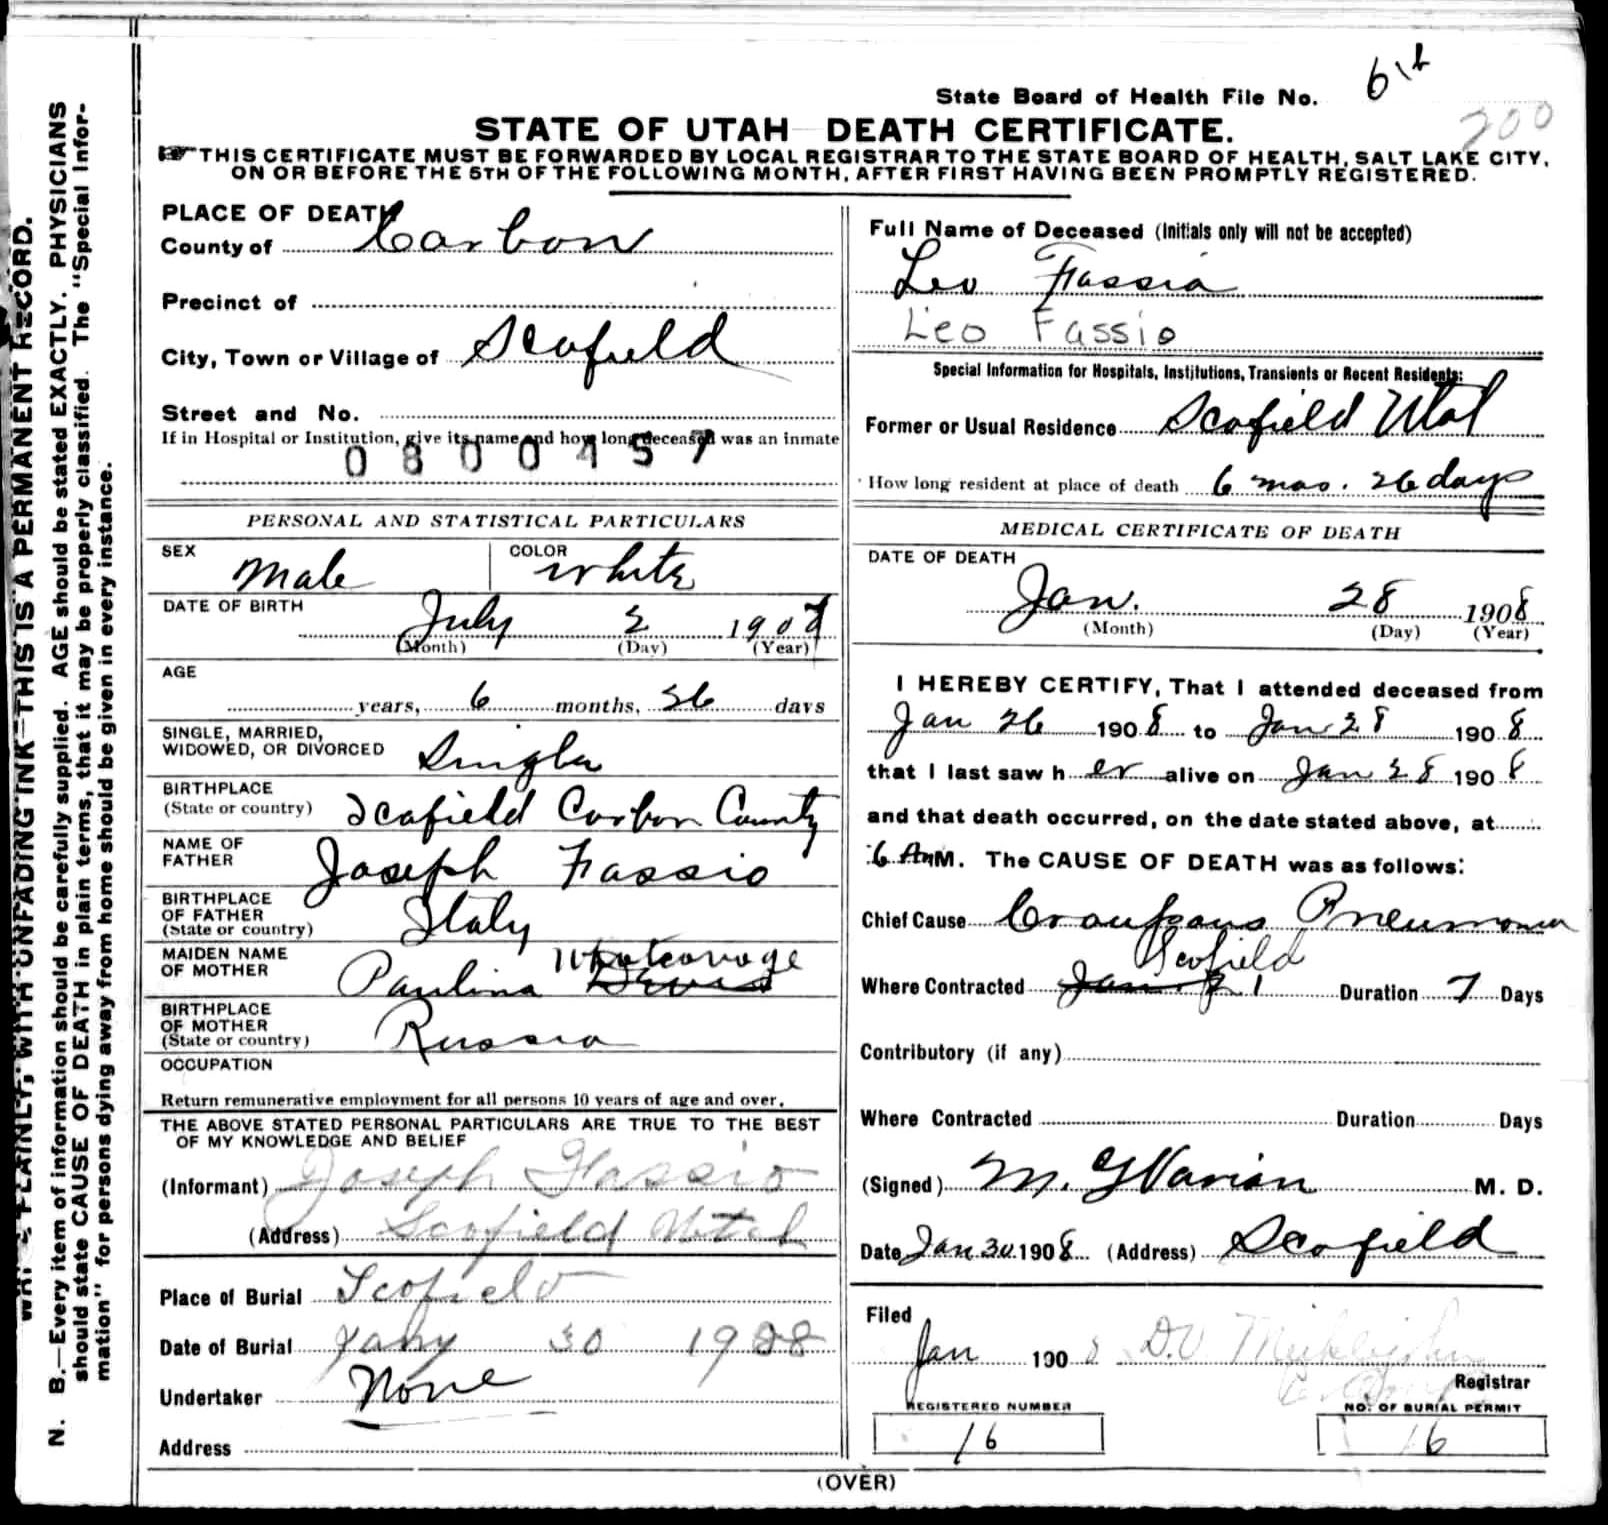 State Board of Health File No.
200
STATE OF UTAH DEATH CERTIFICATE.
THIS CERTIFICATE MUST BE FORWARDED BY LOCAL REGISTRAR TO THE STATE BOARD OF HEALTH, SALT LAKE CITY,
ON OR BEFORE THE 5TH OF THE FOLLOWING MONTH, AFTER FIRST HAVING BEEN PROMPTLY REGISTERED.
WRITE PLAINLY, WITH UNFADING INK—THIS IS A PERMANENT RECORD.
N. B.—Every item of information should be carefully supplied. AGE should be stated EXACTLY. PHYSICIANS
should state CAUSE OF DEATH in plain terms, that it may be properly classified. The "Special Infor-
mation" for persons dying away from home should be given in every instance.
PLACE OF DEATH
County of Carbon
Precinct of
City, Town or Village of Scofield
Street and No.
If in Hospital or Institution, give its name and how long deceased was an inmate
0800457
PERSONAL AND STATISTICAL PARTICULARS
SEX Male COLOR White
DATE OF BIRTH July 2 1907
(Month) (Day) (Year)
AGE
years, 6 months, 26 days
SINGLE, MARRIED,
WIDOWED, OR DIVORCED Single
BIRTHPLACE
(State or country) Scofield Carbon County
NAME OF
FATHER Joseph Fassio
BIRTHPLACE
OF FATHER
(State or country) Italy
MAIDEN NAME
OF MOTHER Paulina
BIRTHPLACE
OF MOTHER
(State or country) Russia
OCCUPATION
Return remunerative employment for all persons 10 years of age and over.
THE ABOVE STATED PERSONAL PARTICULARS ARE TRUE TO THE BEST
OF MY KNOWLEDGE AND BELIEF
(Informant) Joseph Fassio
(Address) Scofield Utah
Place of Burial Scofield
Date of Burial Jany 30 1908
Undertaker None
Address
Full Name of Deceased (Initials only will not be accepted)
Leo Fassia
Leo Fassio
Special Information for Hospitals, Institutions, Transients or Recent Residents:
Former or Usual Residence Scofield Utah
How long resident at place of death 6 mos. 26 days
MEDICAL CERTIFICATE OF DEATH
DATE OF DEATH
Jan. 28 1908
(Month) (Day) (Year)
I HEREBY CERTIFY, That I attended deceased from
Jan 26 1908 to Jan 28 1908
that I last saw h er alive on Jan 28 1908
and that death occurred, on the date stated above, at
6 A M. The CAUSE OF DEATH was as follows:
Chief Cause Croupous Pneumonia
Scofield
Where Contracted Duration 7 Days
Contributory (if any)
Where Contracted Duration Days
(Signed) M. D.
Date Jan 30 1908 (Address) Scofield
Filed
Jan 1908 D.V.
Registrar
REGISTERED NUMBER
16
NO. OF BURIAL PERMIT
16
(OVER)